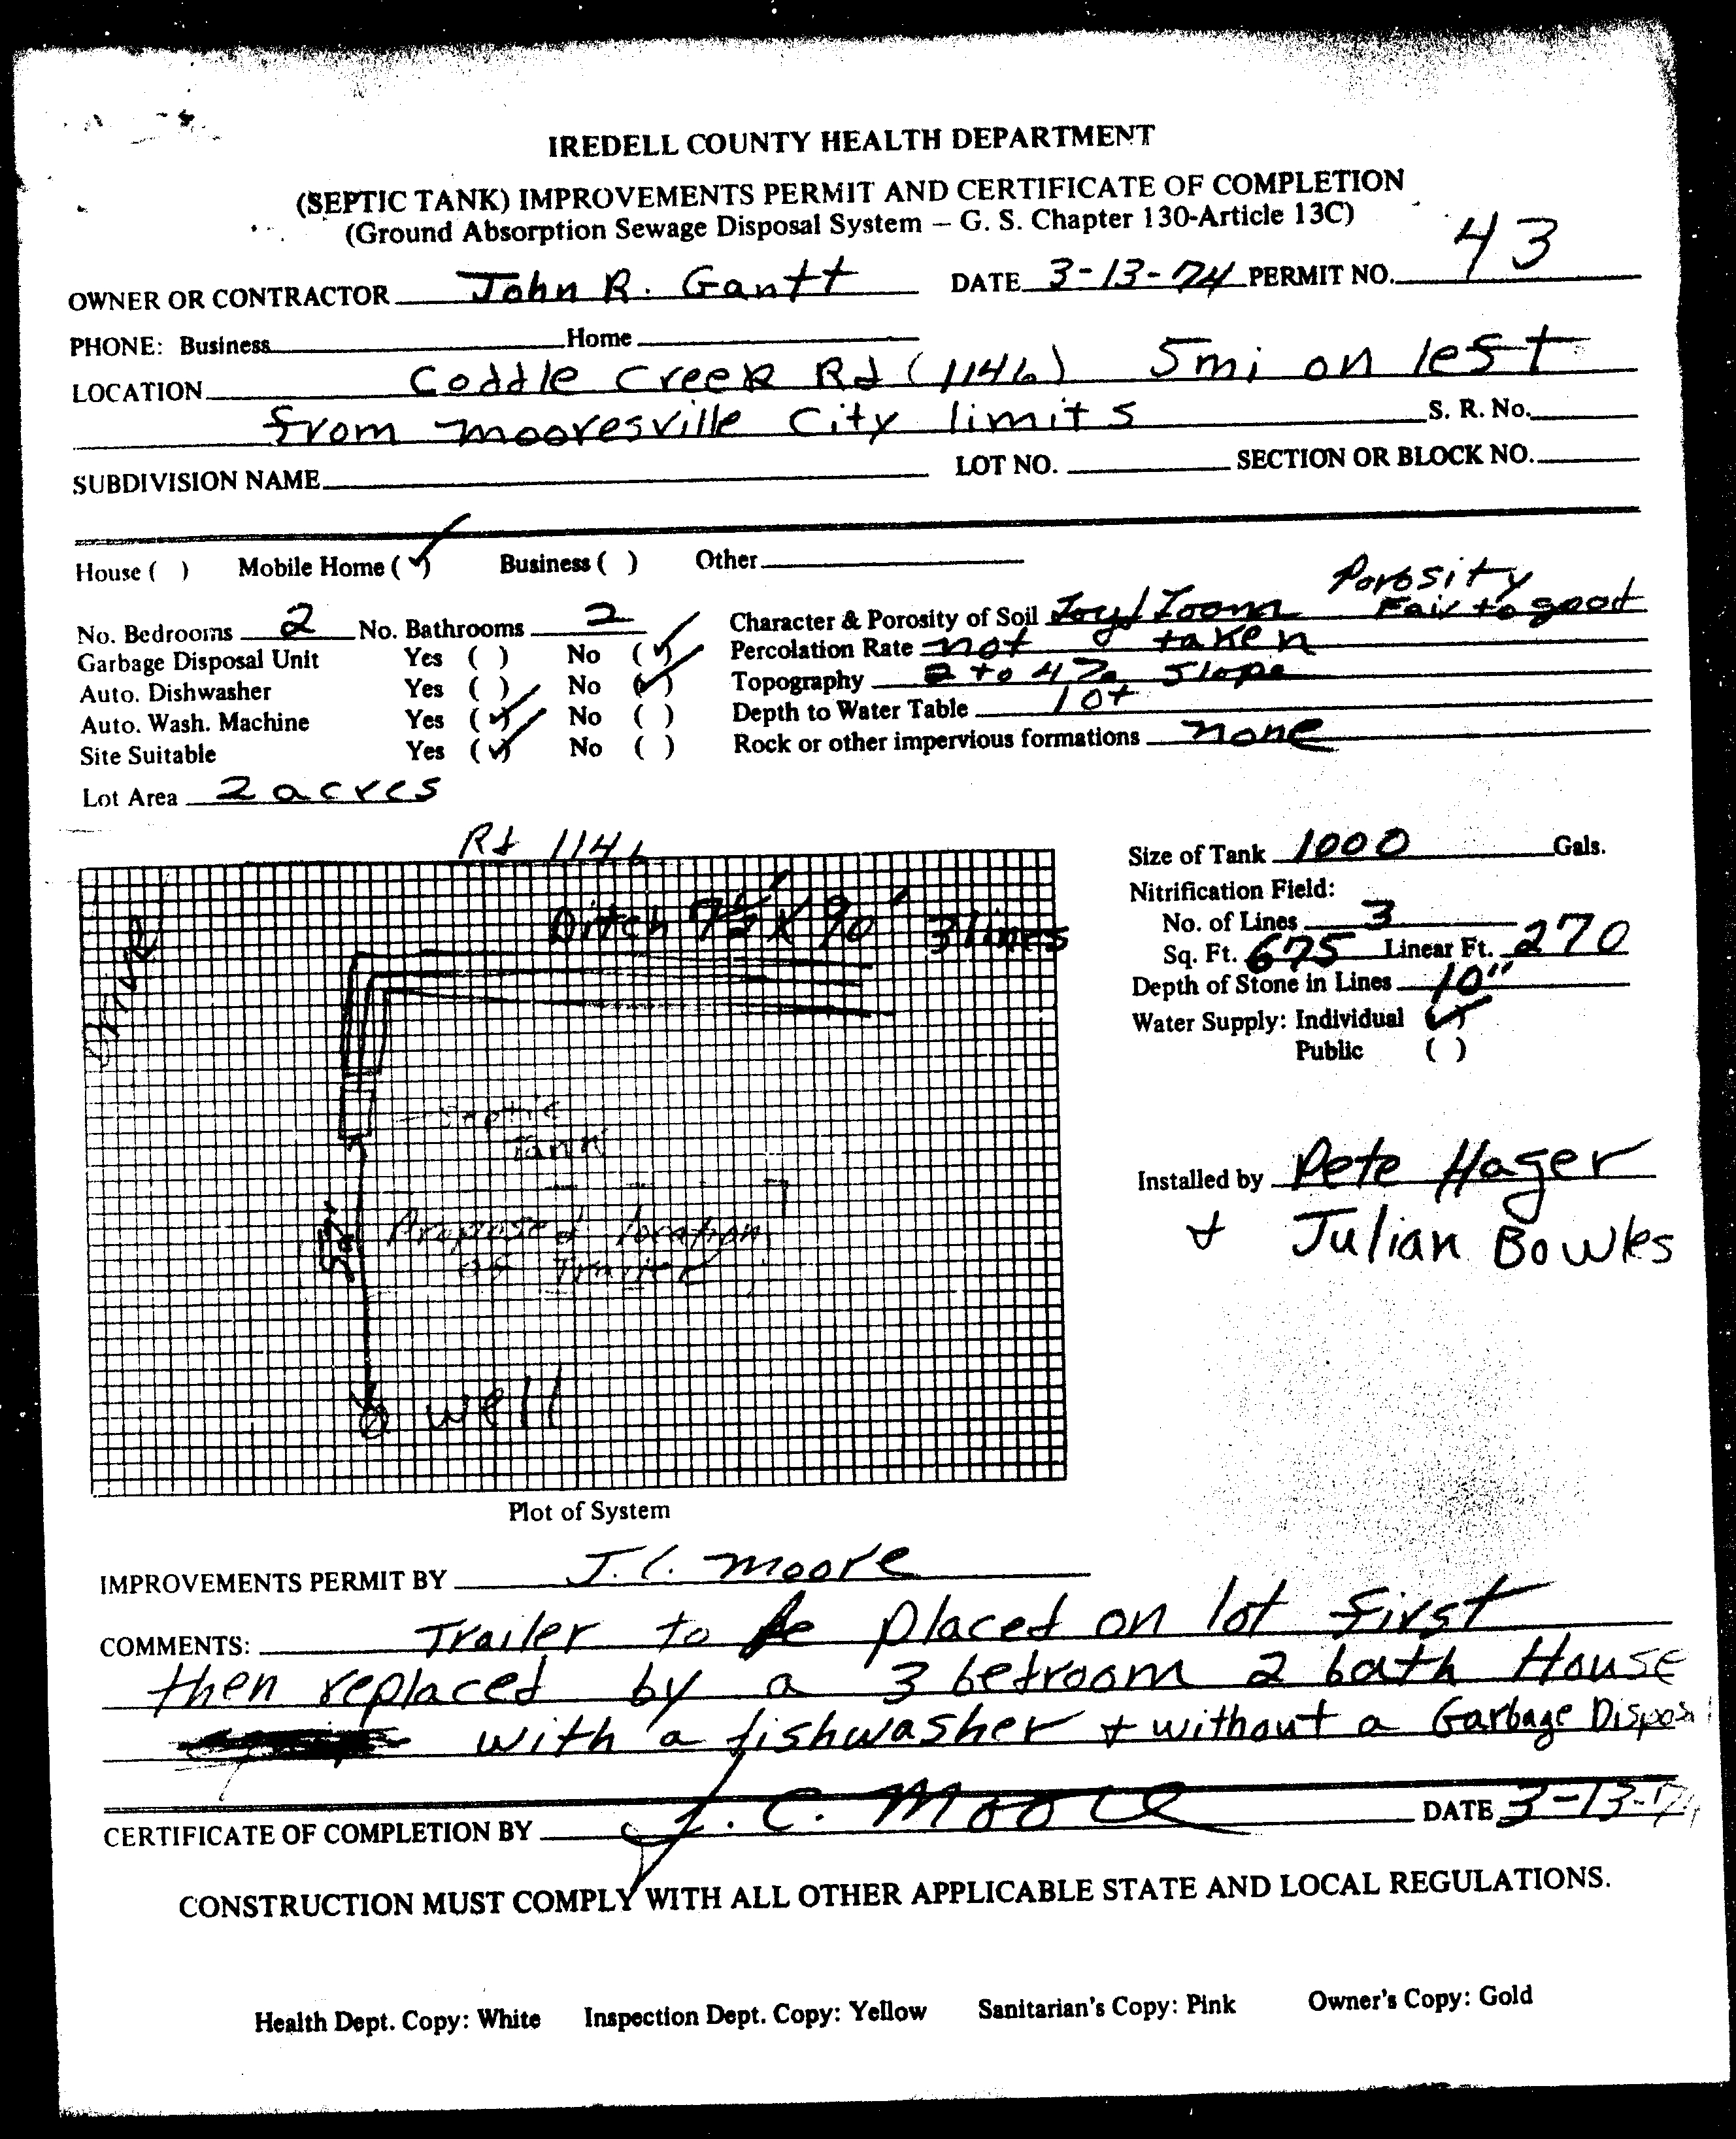 IREDELL COUNTY HEALTH DEPARTMENT
(SEPTIC TANK) IMPROVEMENTS PERMIT AND CERTIFICATE OF COMPLETION
(Ground Absorption Sewage Disposal System – G. S. Chapter 130-Article 13C)
OWNER OR CONTRACTOR John R. Gantt DATE 3-13-74 PERMIT NO. 43
PHONE: Business Home
LOCATION Coddle Creek Rd (1146) 5mi on left
from mooresville City limits S. R. No.
SUBDIVISION NAME LOT NO. SECTION OR BLOCK NO.
House ( ) Mobile Home (✓) Business ( ) Other
Porosity
No. Bedrooms 2 No. Bathrooms 2 Character & Porosity of Soil Fair to good
Garbage Disposal Unit Yes ( ) No (✓) Percolation Rate not taken
Auto. Dishwasher Yes ( ) No (✓) Topography 2 to 4% slope
Auto. Wash. Machine Yes (✓) No ( ) Depth to Water Table 10+
Site Suitable Yes (✓) No ( ) Rock or other impervious formations none
Lot Area 2 acres
Rd 1146
Ditch 7½' X 90' 3 lines
Drive
Septic
Tank
Proposed location
of Trailer
50'
well
Plot of System
Size of Tank 1000 Gals.
Nitrification Field:
No. of Lines 3
Sq. Ft. 675 Linear Ft. 270
Depth of Stone in Lines 10"
Water Supply: Individual (✓)
Public ( )
Installed by Pete Hager
+ Julian Bowles
IMPROVEMENTS PERMIT BY J.C. moore
COMMENTS: Trailer to be placed on lot first
then replaced by a 3 bedroom 2 bath House
with a dishwasher + without a Garbage Disposal
CERTIFICATE OF COMPLETION BY J. C. Moore DATE 3-13-74
CONSTRUCTION MUST COMPLY WITH ALL OTHER APPLICABLE STATE AND LOCAL REGULATIONS.
Health Dept. Copy: White Inspection Dept. Copy: Yellow Sanitarian's Copy: Pink Owner's Copy: Gold